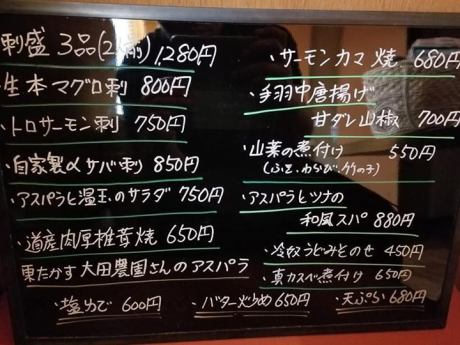 刺盛 3品(2人前) 1,280円
生本マグロ刺 800円
トロサーモン刺 750円
自家製〆サバ刺 850円
アスパラと温玉のサラダ 750円
道産肉厚椎茸焼 650円
東たかす大田農園さんのアスパラ
・塩ゆで 600円 ・バター炒め 650円 ・天ぷら 680円
・サーモンカマ焼 680円
・手羽中唐揚げ
甘ダレ山椒 700円
・山菜の煮付け 550円
(ふき、わらび、竹の子)
・アスパラとツナの
和風スパ 880円
・冷奴うどみそのせ 450円
・真カスベ煮付け 650円